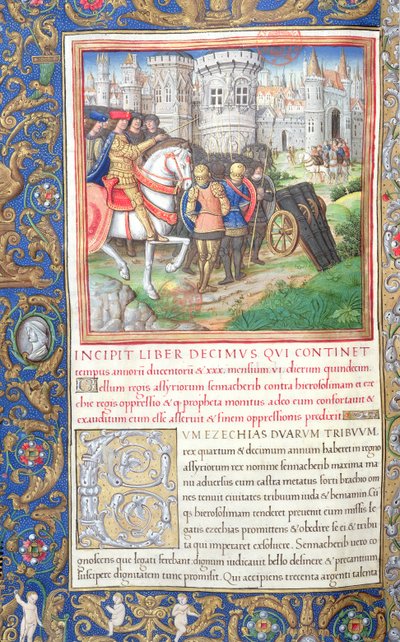 INCIPIT LIBER DECIMVS QVI CONTINET
tempus annorũ ducentorũ & XXX. mensium VI. dierum quindecim.
Bellum regis assyriorum sennacherib contra hierosolimam et eze
chie regis oppressio & q propheta monitus a deo eum confortauit &
exauditum eum esse asseruit & finem oppressionis predixit.
CVM EZECHIAS DVARVM TRIBVVM.
rex quartum & decimum annum haberet in regno
assyriorum rex nomine sennacherib maxima ma
nu aduersus eum castra metatus forti brachio om
nes tenuit ciuitates tribuum iuda & beniamin. Cũ
qs hierosolimam tendere preuenit eum missis le
gatis ezechias promittens & obedire se ei & tribu
ta qui imperaret exsoluere. Sennacherib uero co
gnoscens que legati ferebant: dignum iudicauit bello desinere & precantum
suscipere dignitatem tunc promisit. Qui accipiens trecenta argenti talenta